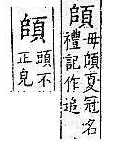 頧毋頧夏冠名
禮記作追
頧頭不
正皃